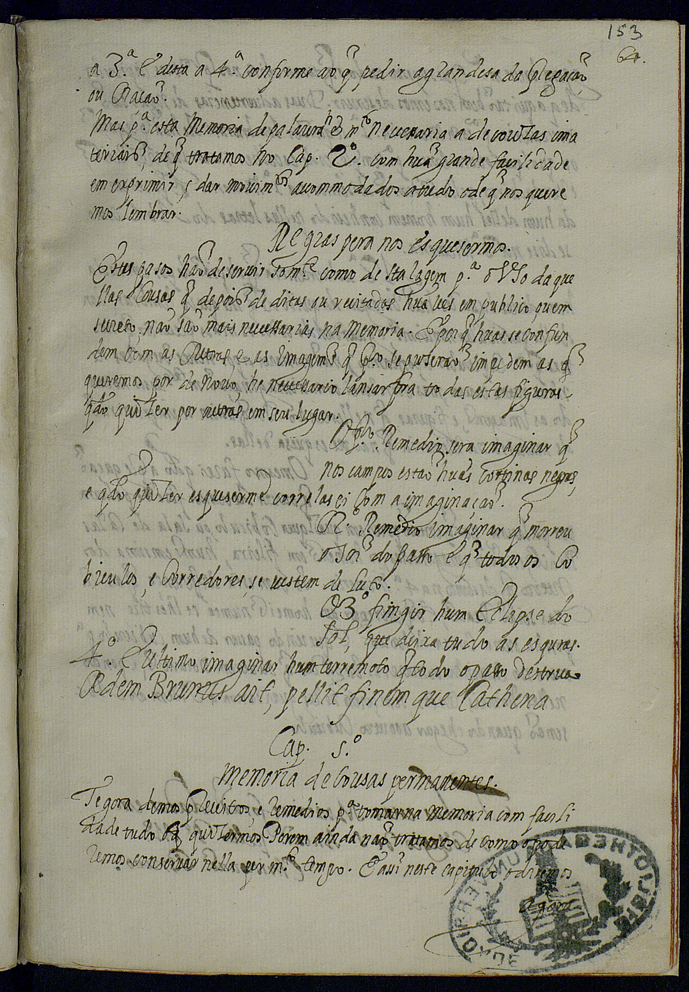 153
64.
a 3.ª E desta a 4.ª conforme ao q̃ pedir a grandesa da
ou Oração.
Mas p.ª esta Memoria de palauras he m.to necessaria a de cousas ima
de q̃ tratamos no Cap. 2.º com hua grande facilidade
em exprimir, e dar accommodados a tudo o de q̃ nos quere
mos lembrar.
Regras pera nos esquesermos.
Estes casos hão de servir som.te como de Stalagem p.ª o Vso daque
llas Cousas q̃ depois de ditas ou recitadas hua ues em publico ouem
secreto, não são mais necessarias na memoria. E porq̃ huas se confun
dem com as outras, e as Imagens q̃ impedem as q̃
queremos por de Nouo, he necessario lansar fora todas estas figuras
qdo quiser por outras em seu lugar.
O pr.º Remedio sera imaginar q̃
nos campos estão huas cortinas negras,
e qdo quiser esqueserme correlas ei com a imaginação.
O 2.º Remedio imaginar q̃ morreu
o do passo e q̃ todos os Co
biculos, e Corredores, se uestem de Luto.
O 3.º fingir hum Eclipse do
Sol, que deixa tudo ás escuras.
4.º E ultimo imaginar hum terremoto q̃ todo o passo destrua
Ædem Brumus ait, pellit finemque Cathena
Cap. 5.º
Memoria de Cousas permanentes.
Tegora demos Preceitos e Remedios p.ª tomar na Memoria com facili
dade tudo o q̃ quisermos Porem ainda não tratamos de como o pode
remos conseruar nella per m.to tempo. E aqui neste capitulo o diremos
Agora
BIBLIOTHECA